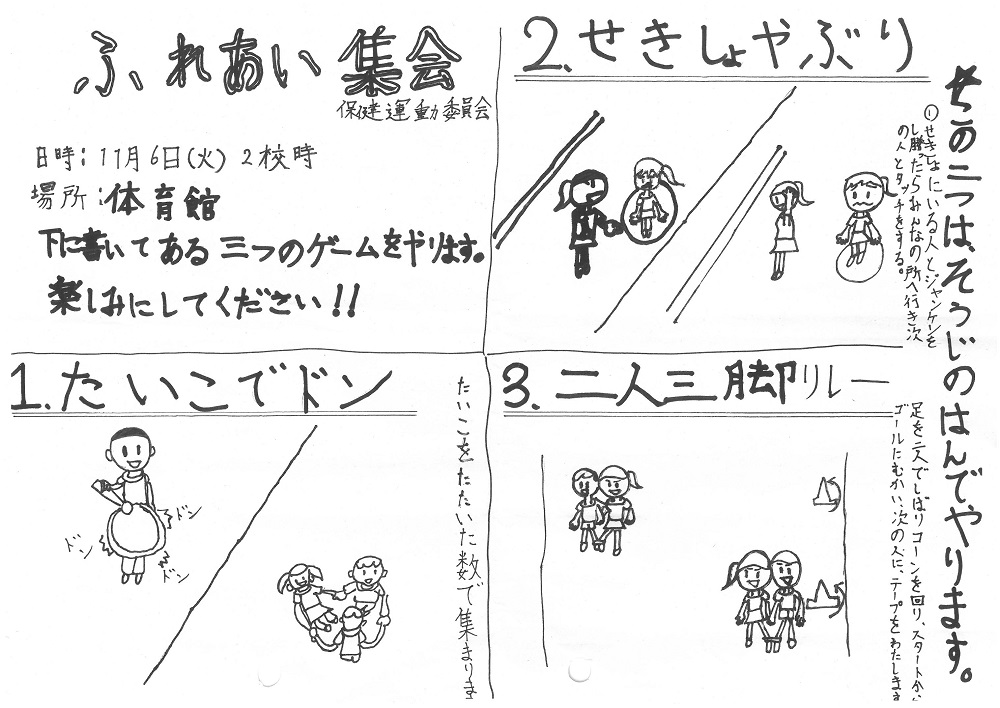 ふれあい集会
保健運動委員会
日時:11月6日(火)2校時
場所:体育館
下に書いてある三つのゲームをやります。
楽しみにしてください!!
1.たいこでドン
たいこをたたいた数で集まりま
ドン
ドン
ドン
2.せきしょやぶり
①せきしょにいる人とジャンケンを
し勝ったらみんなの所へ行き次
の人とタッチをする。
3.二人三脚リレー
足を二人でしばりコーンを回り、スタートから
ゴールにむかい、次の人に、テープをわたします
この二つは、そうじのはんでやります。